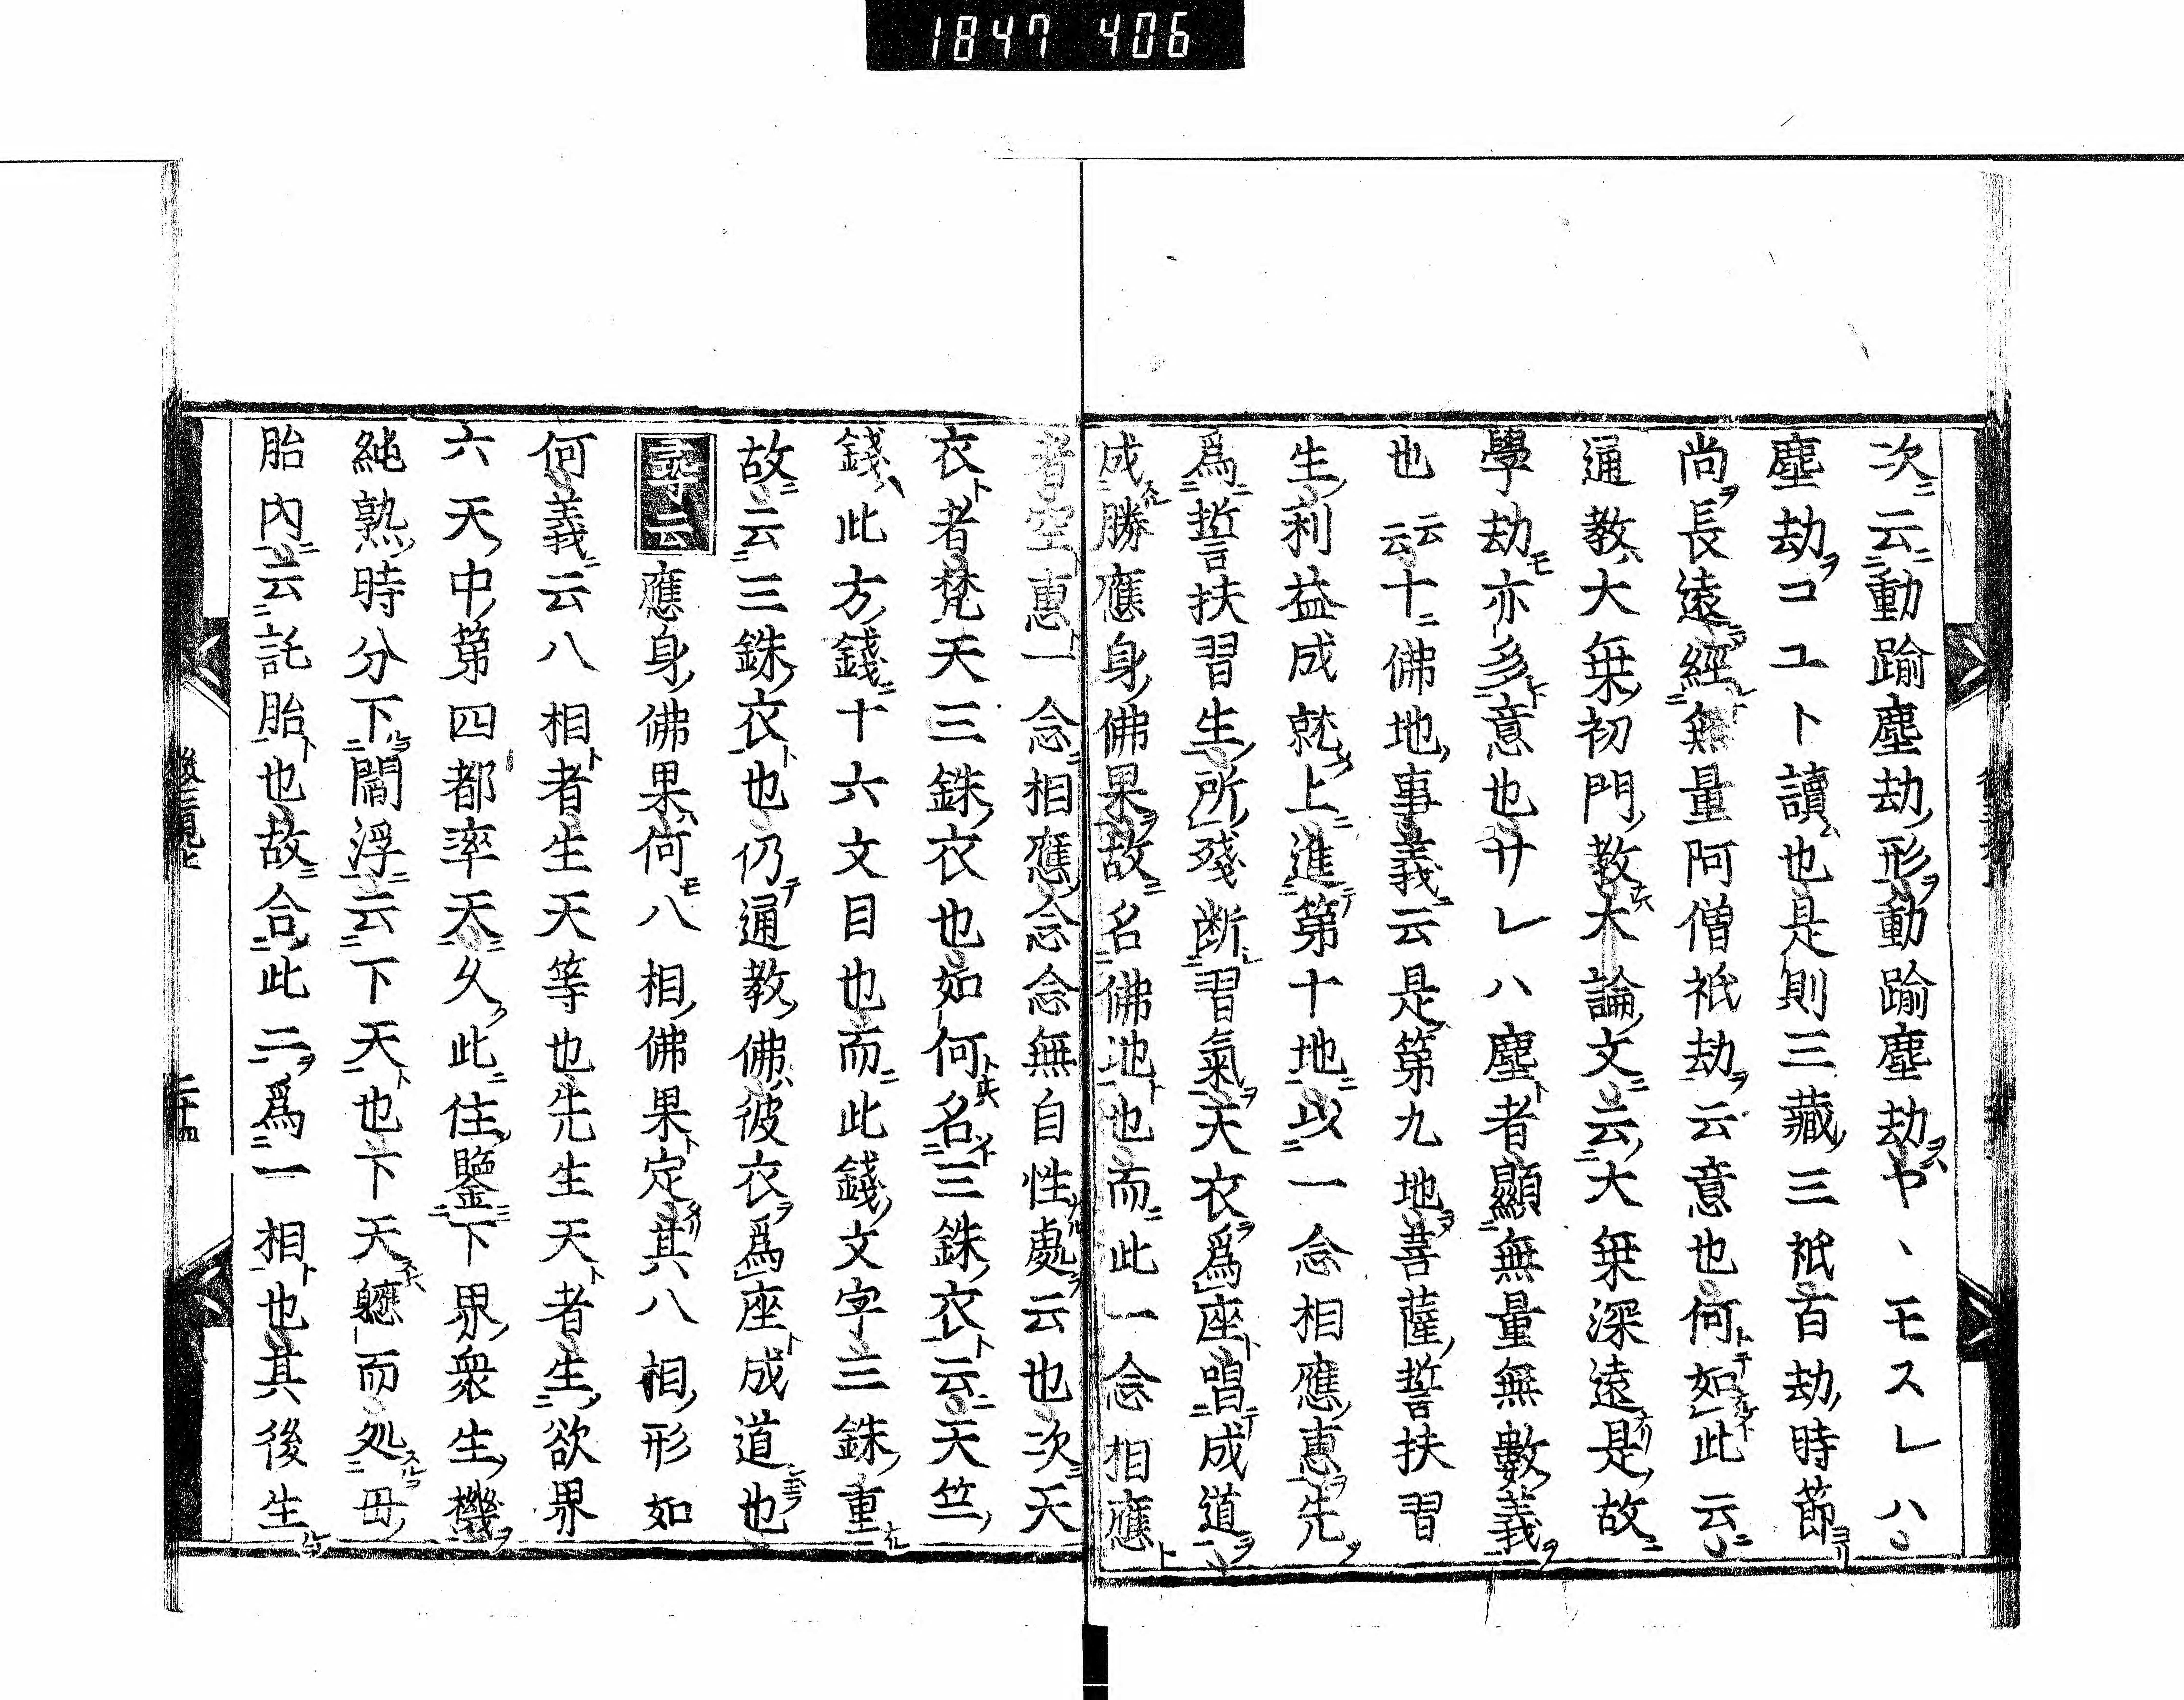 1847 406
次云動踰塵劫形動踰塵劫ヤヽモスレハ
塵劫コユト讀也是則三藏三祇百劫時節
尚長遠經無量阿僧祇劫云意也何如此云
通教大乗初門教大論文云大乗深遠是故
學劫亦多意也サレハ塵者顯無量無數義
也云云十佛地事義云是第九地菩薩誓扶習
生利益成就上進第十地以一念相應惠先
爲誓扶習生所殘断習氣天衣爲座唱成道
成勝應身佛果故名佛地也而此一念相應
者空惠一念相應念念無自性處云也次天
衣者梵天三銖衣也如何名三銖衣云天竺
錢此方錢十六文目也而此錢文字三銖重
故云三銖衣也仍通教佛彼衣爲座成道也
尋云應身佛果何八相佛果定其八相形如
何義云八相者生天等也先生天者生欲界
六天中第四都率天久此住鑒下界衆生機
純熟時分下閻浮云下天也下天軈而処母
胎內云託胎也故合此二爲一相也其後生
二十四